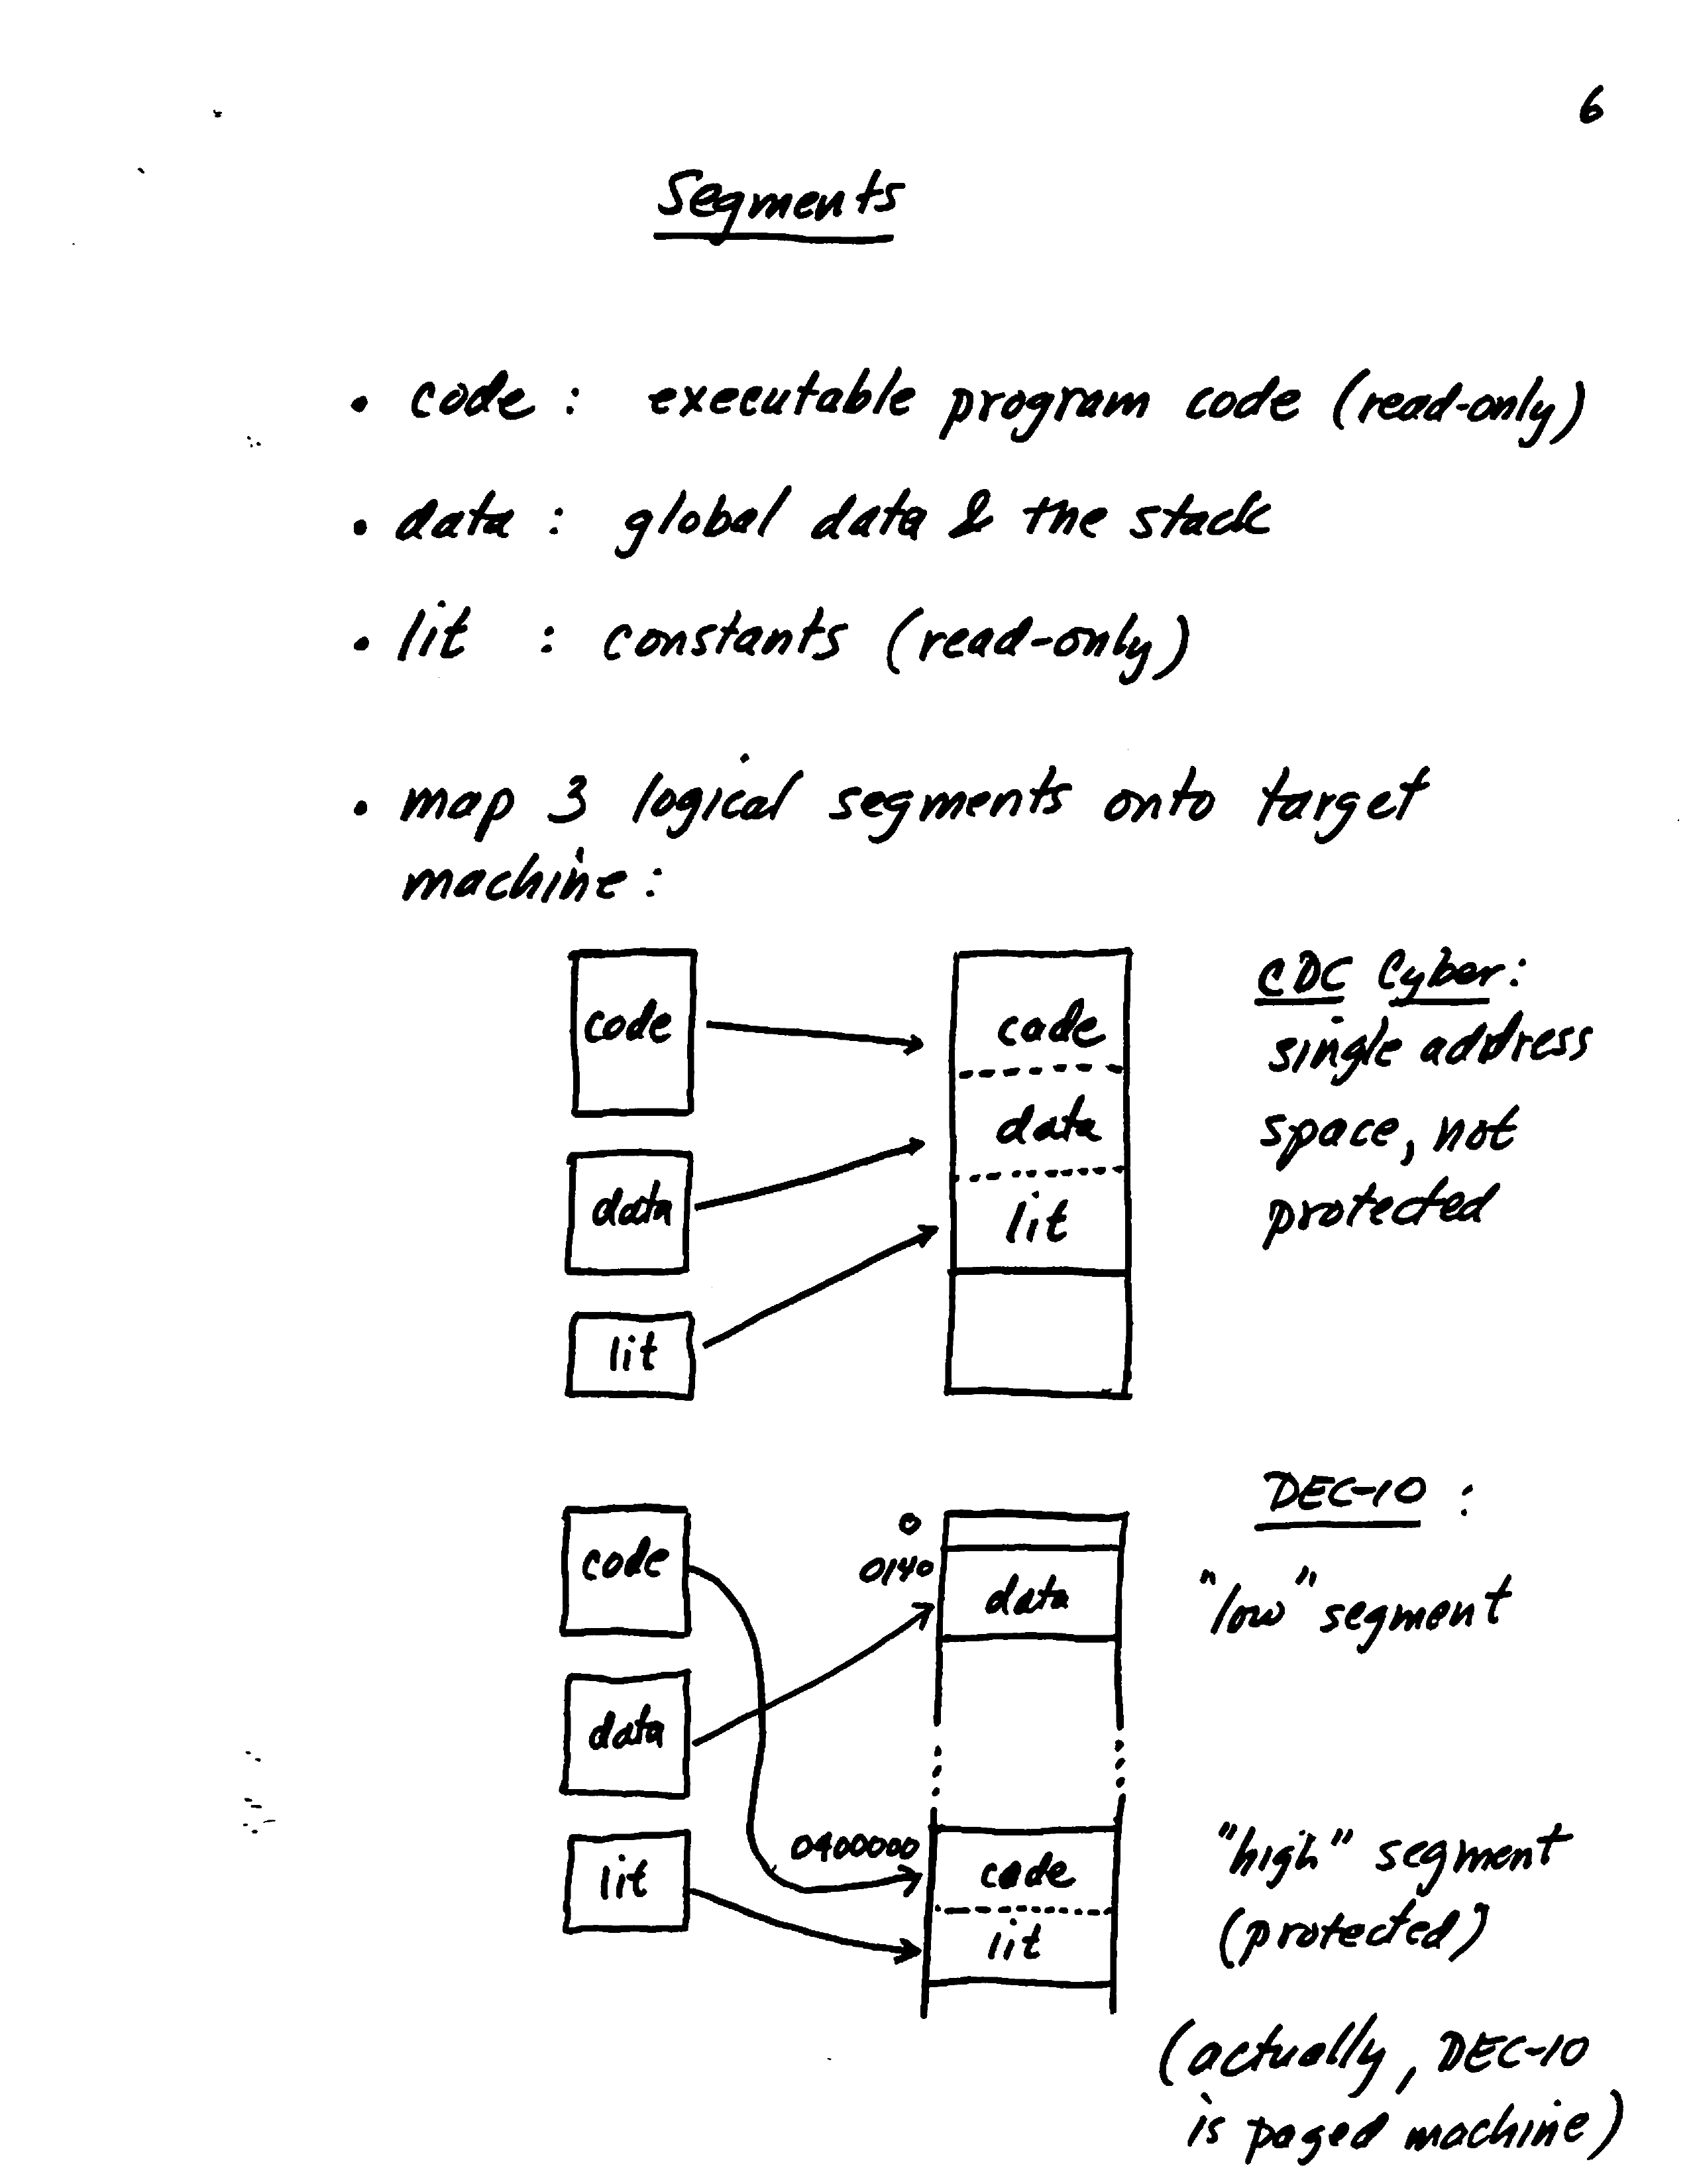 6
Segments
• code : executable program code (read-only)
• data : global data & the stack
• lit : constants (read-only)
• map 3 logical segments onto target
machine :
code
data
lit
code
data
lit
CDC Cyber :
single address
space, not
protected
code
data
lit
0
0140
data
0400000
code
lit
DEC-10 :
"low" segment
"high" segment
(protected)
(actually, DEC-10
is paged machine)